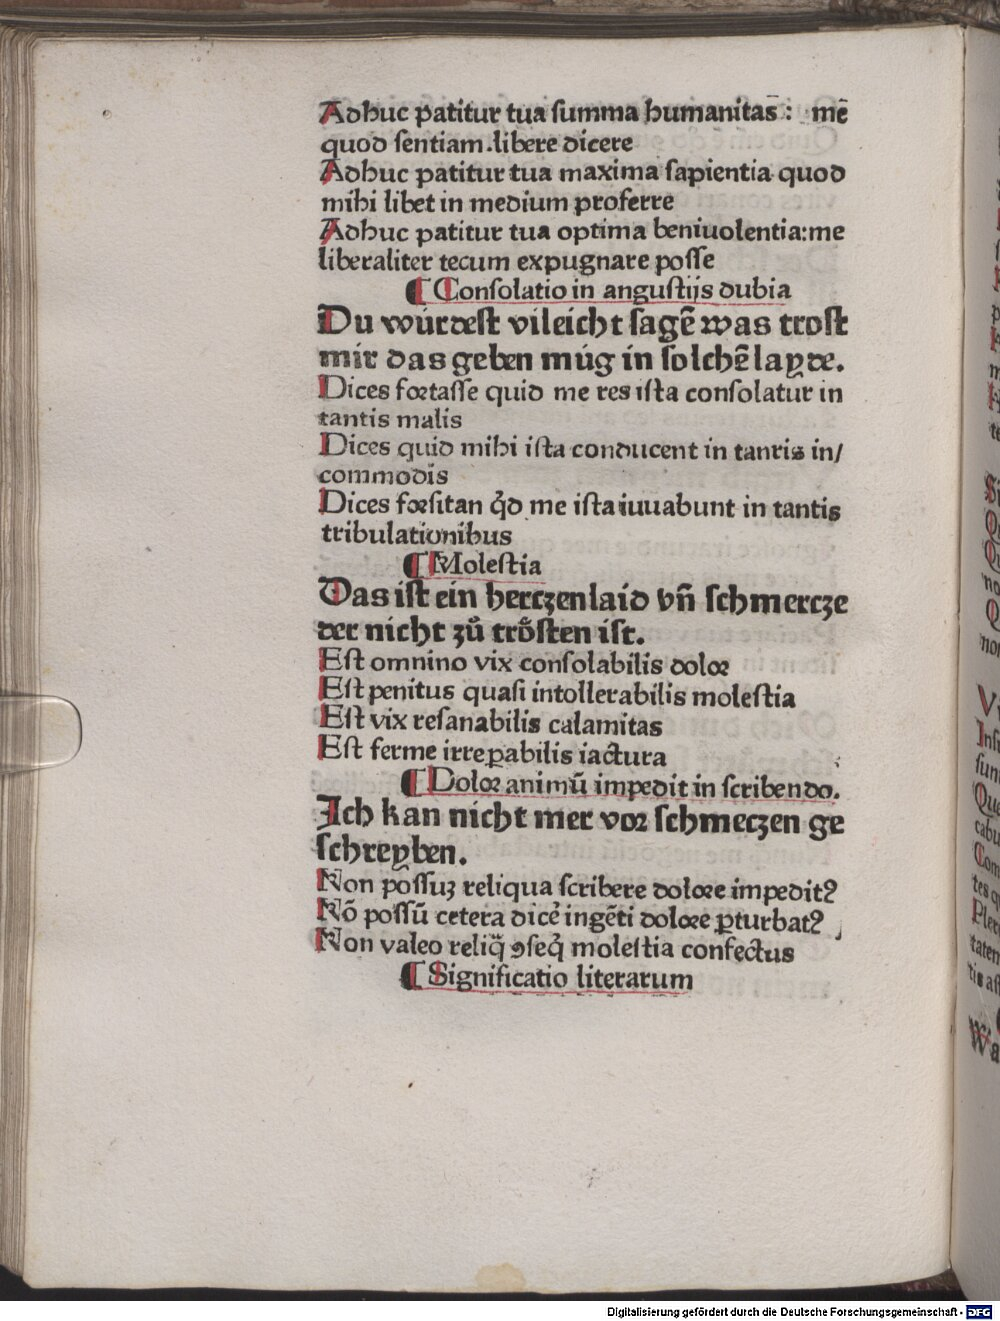 Adhuc patitur tua ſumma humanitas : mē
quod ſentiam.libere dicere
Adhuc patitur tua maxima ſapientia quod
mihi libet in medium proferre
Adhuc patitur tua optima beniuolentia:me
liberaliter tecum expugnare poſſe
¶ Conſolatio in anguſtijs dubia
Du würdeſt vileicht ſagē was troſt
mir das geben müg in ſolchē layde.
Dices fortaſſe quid me res iſta conſolatur in
tantis malis
Dices quid mihi iſta conducent in tantis in/
commodis
Dices forſitan qͥd me iſta iuuabunt in tantis
tribulationibus
¶ Moleſtia
Das iſt ein herczenlaid vn̄ ſchmercze
der nicht zů tröſten iſt.
Eſt omnino vix conſolabilis dolor
Eſt penitus quaſi intollerabilis moleſtia
Eſt vix reſanabilis calamitas
Eſt ferme irreꝑabilis iactura
¶ Dolor animū impedit in ſcribendo.
Ich kan nicht mer vor ſchmerczen ge
ſchreyben.
Non poſſuꝫ reliqua ſcribere dolore impeditꝰ
Nō poſſū cetera dicẻ ingēti dolore ꝑturbatꝰ
Non valeo reliq̄ ꝯſeq̇ moleſtia confectus
¶ Significatio literarum
Digitalisierung gefördert durch die Deutsche Forschungsgemeinschaft - DFG